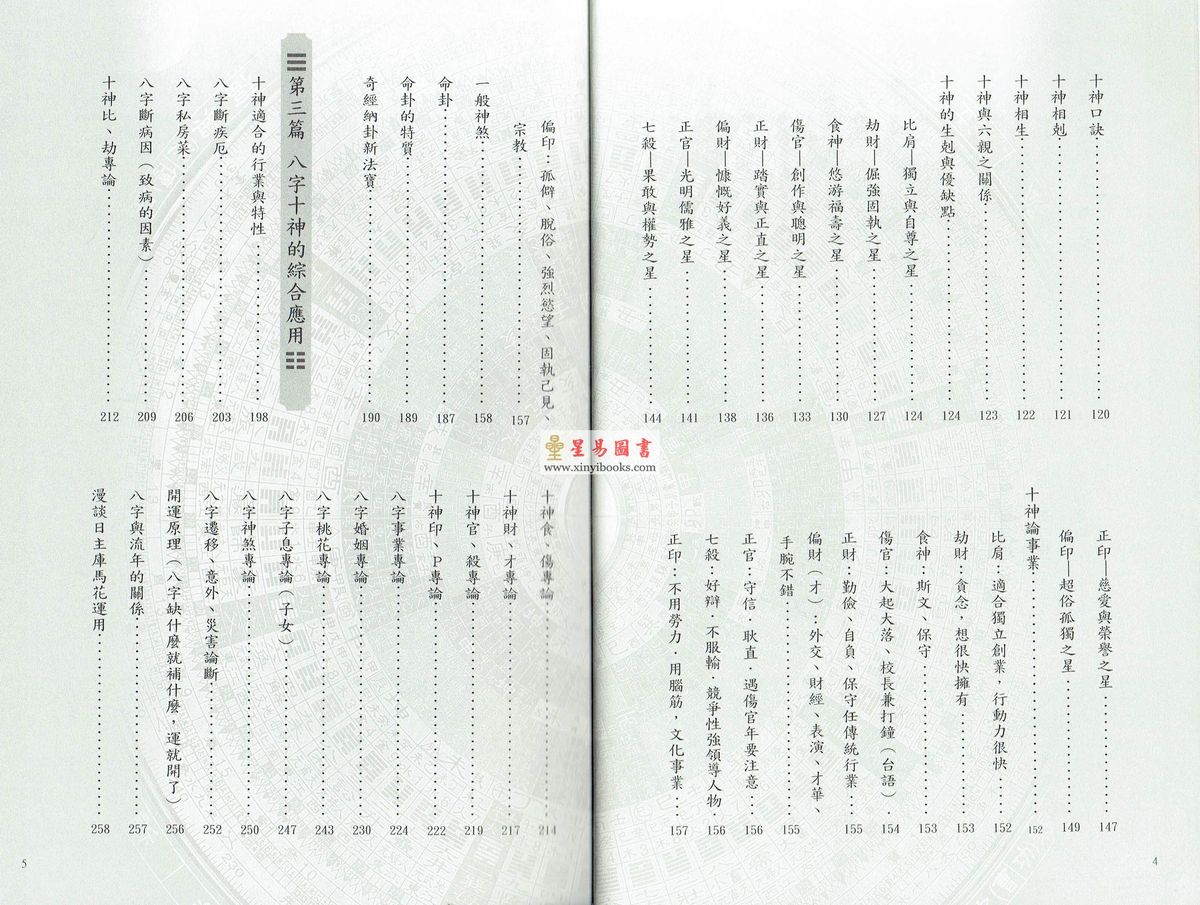 十神口訣 120
十神相剋 121
十神相生 122
十神與六親之關係 123
十神的生剋與優缺點 124
比肩—獨立與自尊之星 124
劫財—倔強固執之星 127
食神—悠游福壽之星 130
傷官—創作與聰明之星 133
正財—踏實與正直之星 136
偏財—慷慨好義之星 138
正官—光明儒雅之星 141
七殺—果敢與權勢之星 144
正印—慈愛與榮譽之星 147
偏印—超俗孤獨之星 149
十神論事業 152
比肩：適合獨立創業，行動力很快 152
劫財：貪念，想很快擁有 153
食神：斯文、保守 153
傷官：大起大落、校長兼打鐘（台語） 154
正財：勤儉、自負、保守任傳統行業 155
偏財（才）：外交、財經、表演、才華、
手腕不錯 155
正官：守信．耿直．遇傷官年要注意 156
七殺：好辯．不服輸．競爭性強領導人物 156
正印：不用勞力．用腦筋，文化事業 157
4
偏印：孤僻、脫俗、強烈慾望、固執己見、
宗教 157
一般神煞 158
命卦 187
命卦的特質 189
奇經納卦新法寶 190
第三篇 八字十神的綜合應用
十神適合的行業與特性 198
八字斷疾厄 203
八字私房菜 206
八字斷病因（致病的因素） 209
十神比、劫專論 212
十神食、傷專論 214
十神財、才專論 217
十神官、殺專論 219
十神印、P專論 222
八字事業專論 224
八字婚姻專論 230
八字桃花專論 243
八字子息專論（子女） 247
八字神煞專論 250
八字遷移、意外、災害論斷 252
開運原理（八字缺什麼就補什麼，運就開了） 256
八字與流年的關係 257
漫談日主庫馬花運用 258
5
星易圖書
www.xinyibooks.com